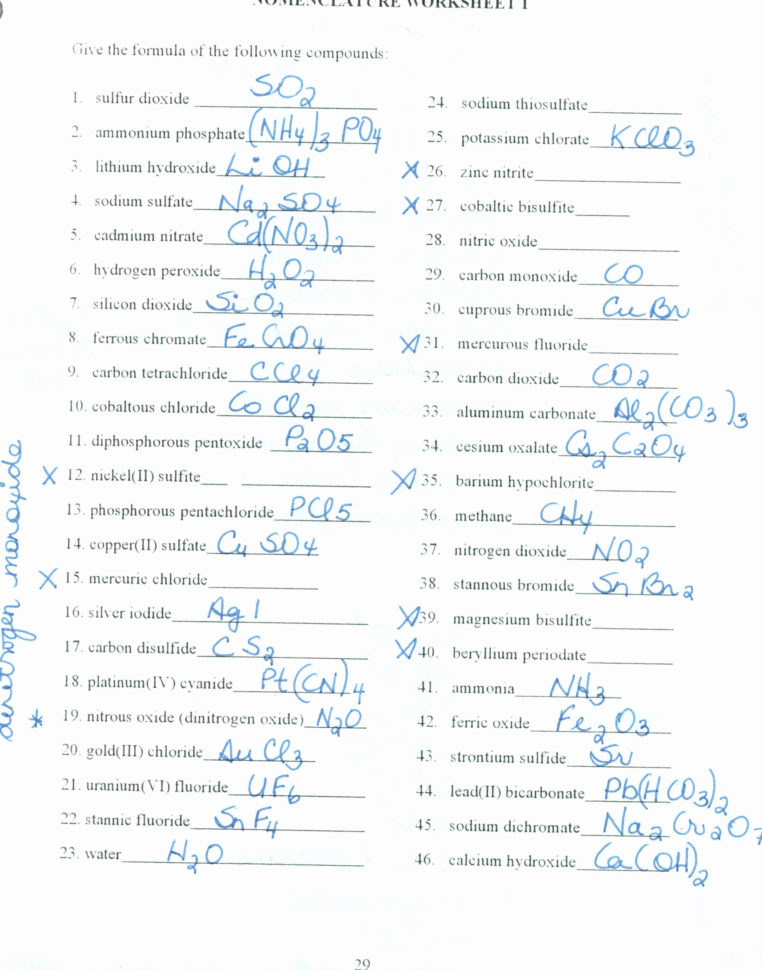 NOMENCLATURE WORKSHEET 1
Give the formula of the following compounds:
1. sulfur dioxide SO2
2. ammonium phosphate (NH4)3 PO4
3. lithium hydroxide LiOH
4. sodium sulfate Na2 SO4
5. cadmium nitrate Cd(NO3)2
6. hydrogen peroxide H2O2
7. silicon dioxide SiO2
8. ferrous chromate FeCrO4
9. carbon tetrachloride CCl4
10. cobaltous chloride CoCl2
11. diphosphorous pentoxide P2O5
X 12. nickel(II) sulfite
13. phosphorous pentachloride PCl5
14. copper(II) sulfate CuSO4
X 15. mercuric chloride
16. silver iodide AgI
17. carbon disulfide CS2
18. platinum(IV) cyanide Pt(CN)4
* 19. nitrous oxide (dinitrogen oxide) N2O
20. gold(III) chloride AuCl3
21. uranium(VI) fluoride UF6
22. stannic fluoride SnF4
23. water H2O
dinitrogen monoxide
24. sodium thiosulfate
25. potassium chlorate KClO3
X 26. zinc nitrite
X 27. cobaltic bisulfite
28. nitric oxide
29. carbon monoxide CO
30. cuprous bromide CuBr
X 31. mercurous fluoride
32. carbon dioxide CO2
33. aluminum carbonate Al2(CO3)3
34. cesium oxalate Cs2C2O4
X 35. barium hypochlorite
36. methane CH4
37. nitrogen dioxide NO2
38. stannous bromide SnBr2
X 39. magnesium bisulfite
X 40. beryllium periodate
41. ammonia NH3
42. ferric oxide Fe2O3
43. strontium sulfide Sr
44. lead(II) bicarbonate Pb(HCO3)2
45. sodium dichromate Na2Cr2O7
46. calcium hydroxide Ca(OH)2
29